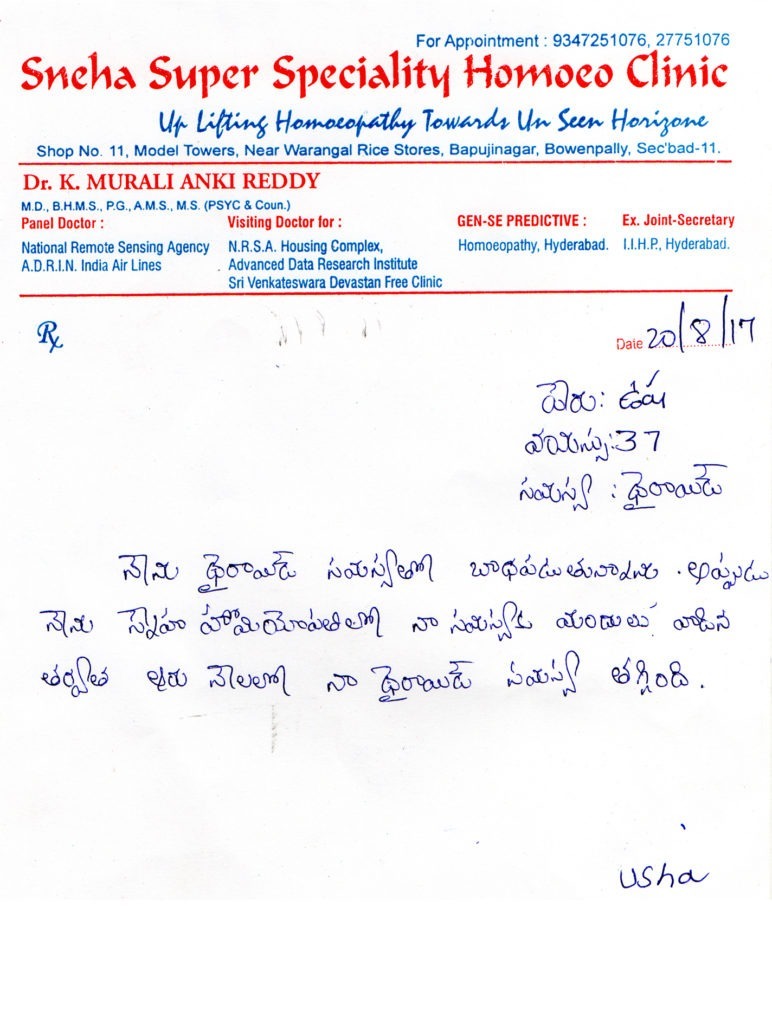 For Appointment : 9347251076, 27751076
Sneha Super Speciality Homoeo Clinic
Up Lifting Homoeopathy Towards Un Seen Horizone
Shop No. 11, Model Towers, Near Warangal Rice Stores, Bapujinagar, Bowenpally, Sec'bad-11.
Dr. K. MURALI ANKI REDDY
M.D., B.H.M.S., P.G., A.M.S., M.S. (PSYC & Coun.)
Panel Doctor : Visiting Doctor for : GEN-SE PREDICTIVE : Ex. Joint-Secretary
National Remote Sensing Agency N.R.S.A. Housing Complex, Homoeopathy, Hyderabad. I.I.H.P., Hyderabad.
A.D.R.I.N. India Air Lines Advanced Data Research Institute
Sri Venkateswara Devastan Free Clinic
Rx
Date 20/8/17
పేరు: ఉష
వయస్సు: 37
సమస్య : థైరాయిడ్
నేను థైరాయిడ్ సమస్యతో బాధపడుతున్నాను. అప్పుడు
నేను స్నేహ హోమియోపతిలో నా సమస్యకు మందులు వాడిన
తర్వాత ఆరు నెలలలో నా థైరాయిడ్ సమస్య తగ్గింది.
Usha